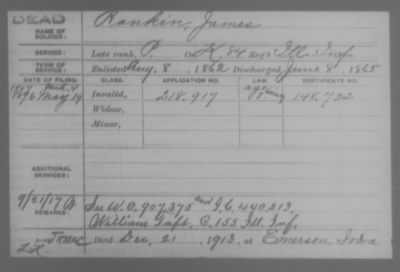 DEAD
NAME OF SOLDIER:
Rankin, James
SERVICE:
Late rank, P. Co. H, 84 Reg't Ill. Inf.
TERM OF SERVICE:
Enlisted Aug. 8, 1862 Discharged June 8, 1865
DATE OF FILING. CLASS. APPLICATION NO. LAW. CERTIFICATE NO.
1876 May 19 Invalid, 218.917 148,732
Widow,
Minor,
ADDITIONAL SERVICES:
REMARKS:
9/21/17
In W.O. 907,375 and I.C. 440,213,
William Taft, C, 155 Ill. Inf.
Died Dec. 21, 1913, at Emerson, Iowa